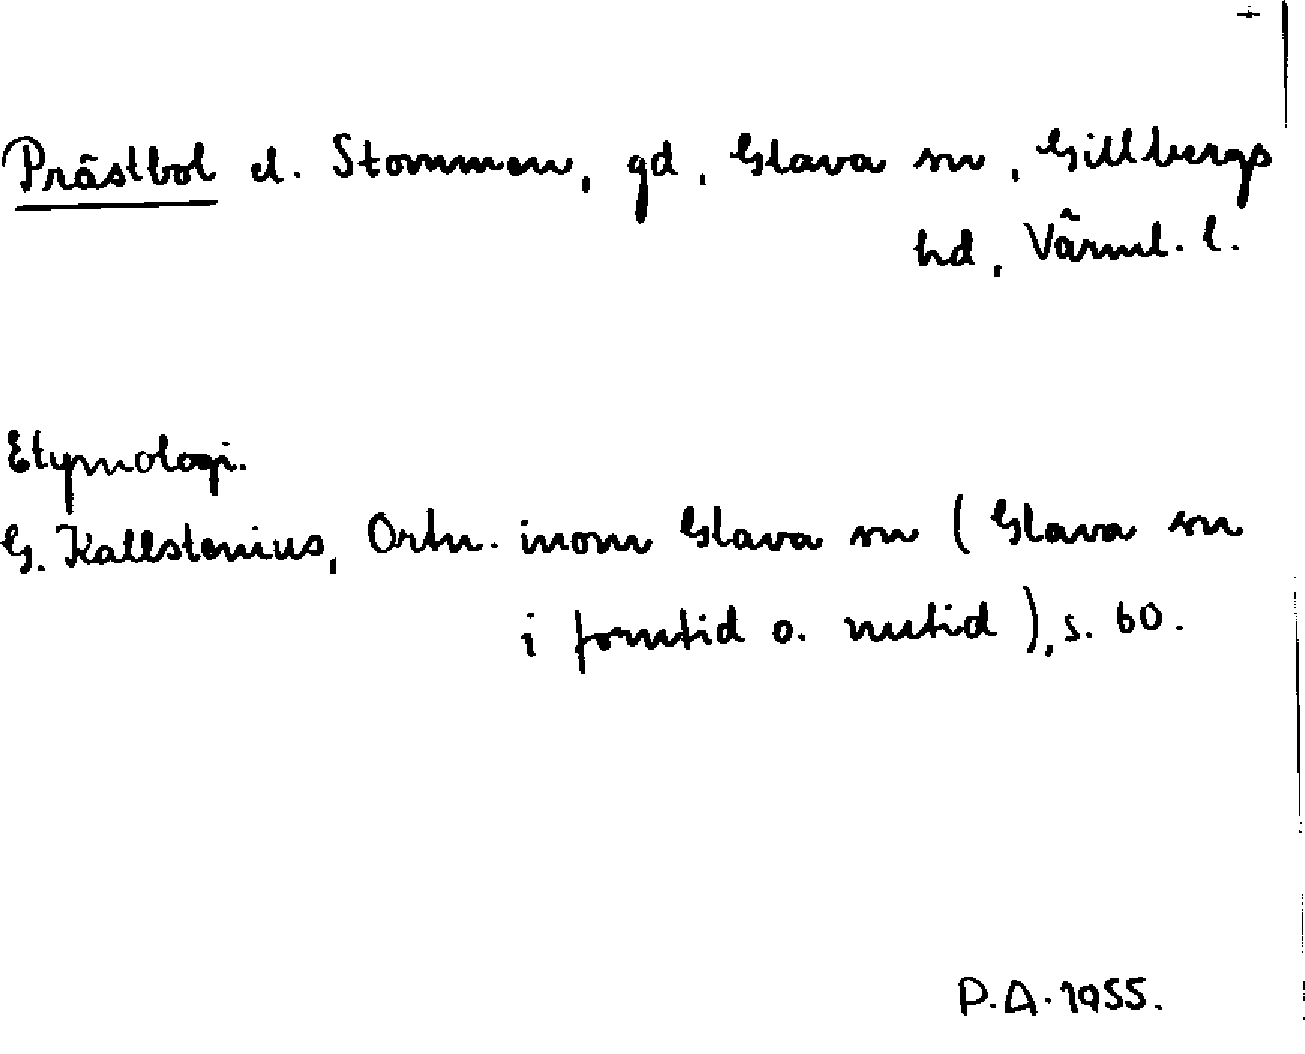 Prästbol el. Stommen, gd, Glava sn, Gillbergs
hd, Värml. l.
Etymologi.
G. Kallstenius, Ortn. inom Glava sn (Glava sn
i forntid o. nutid), s. 60.
P.A. 1955.